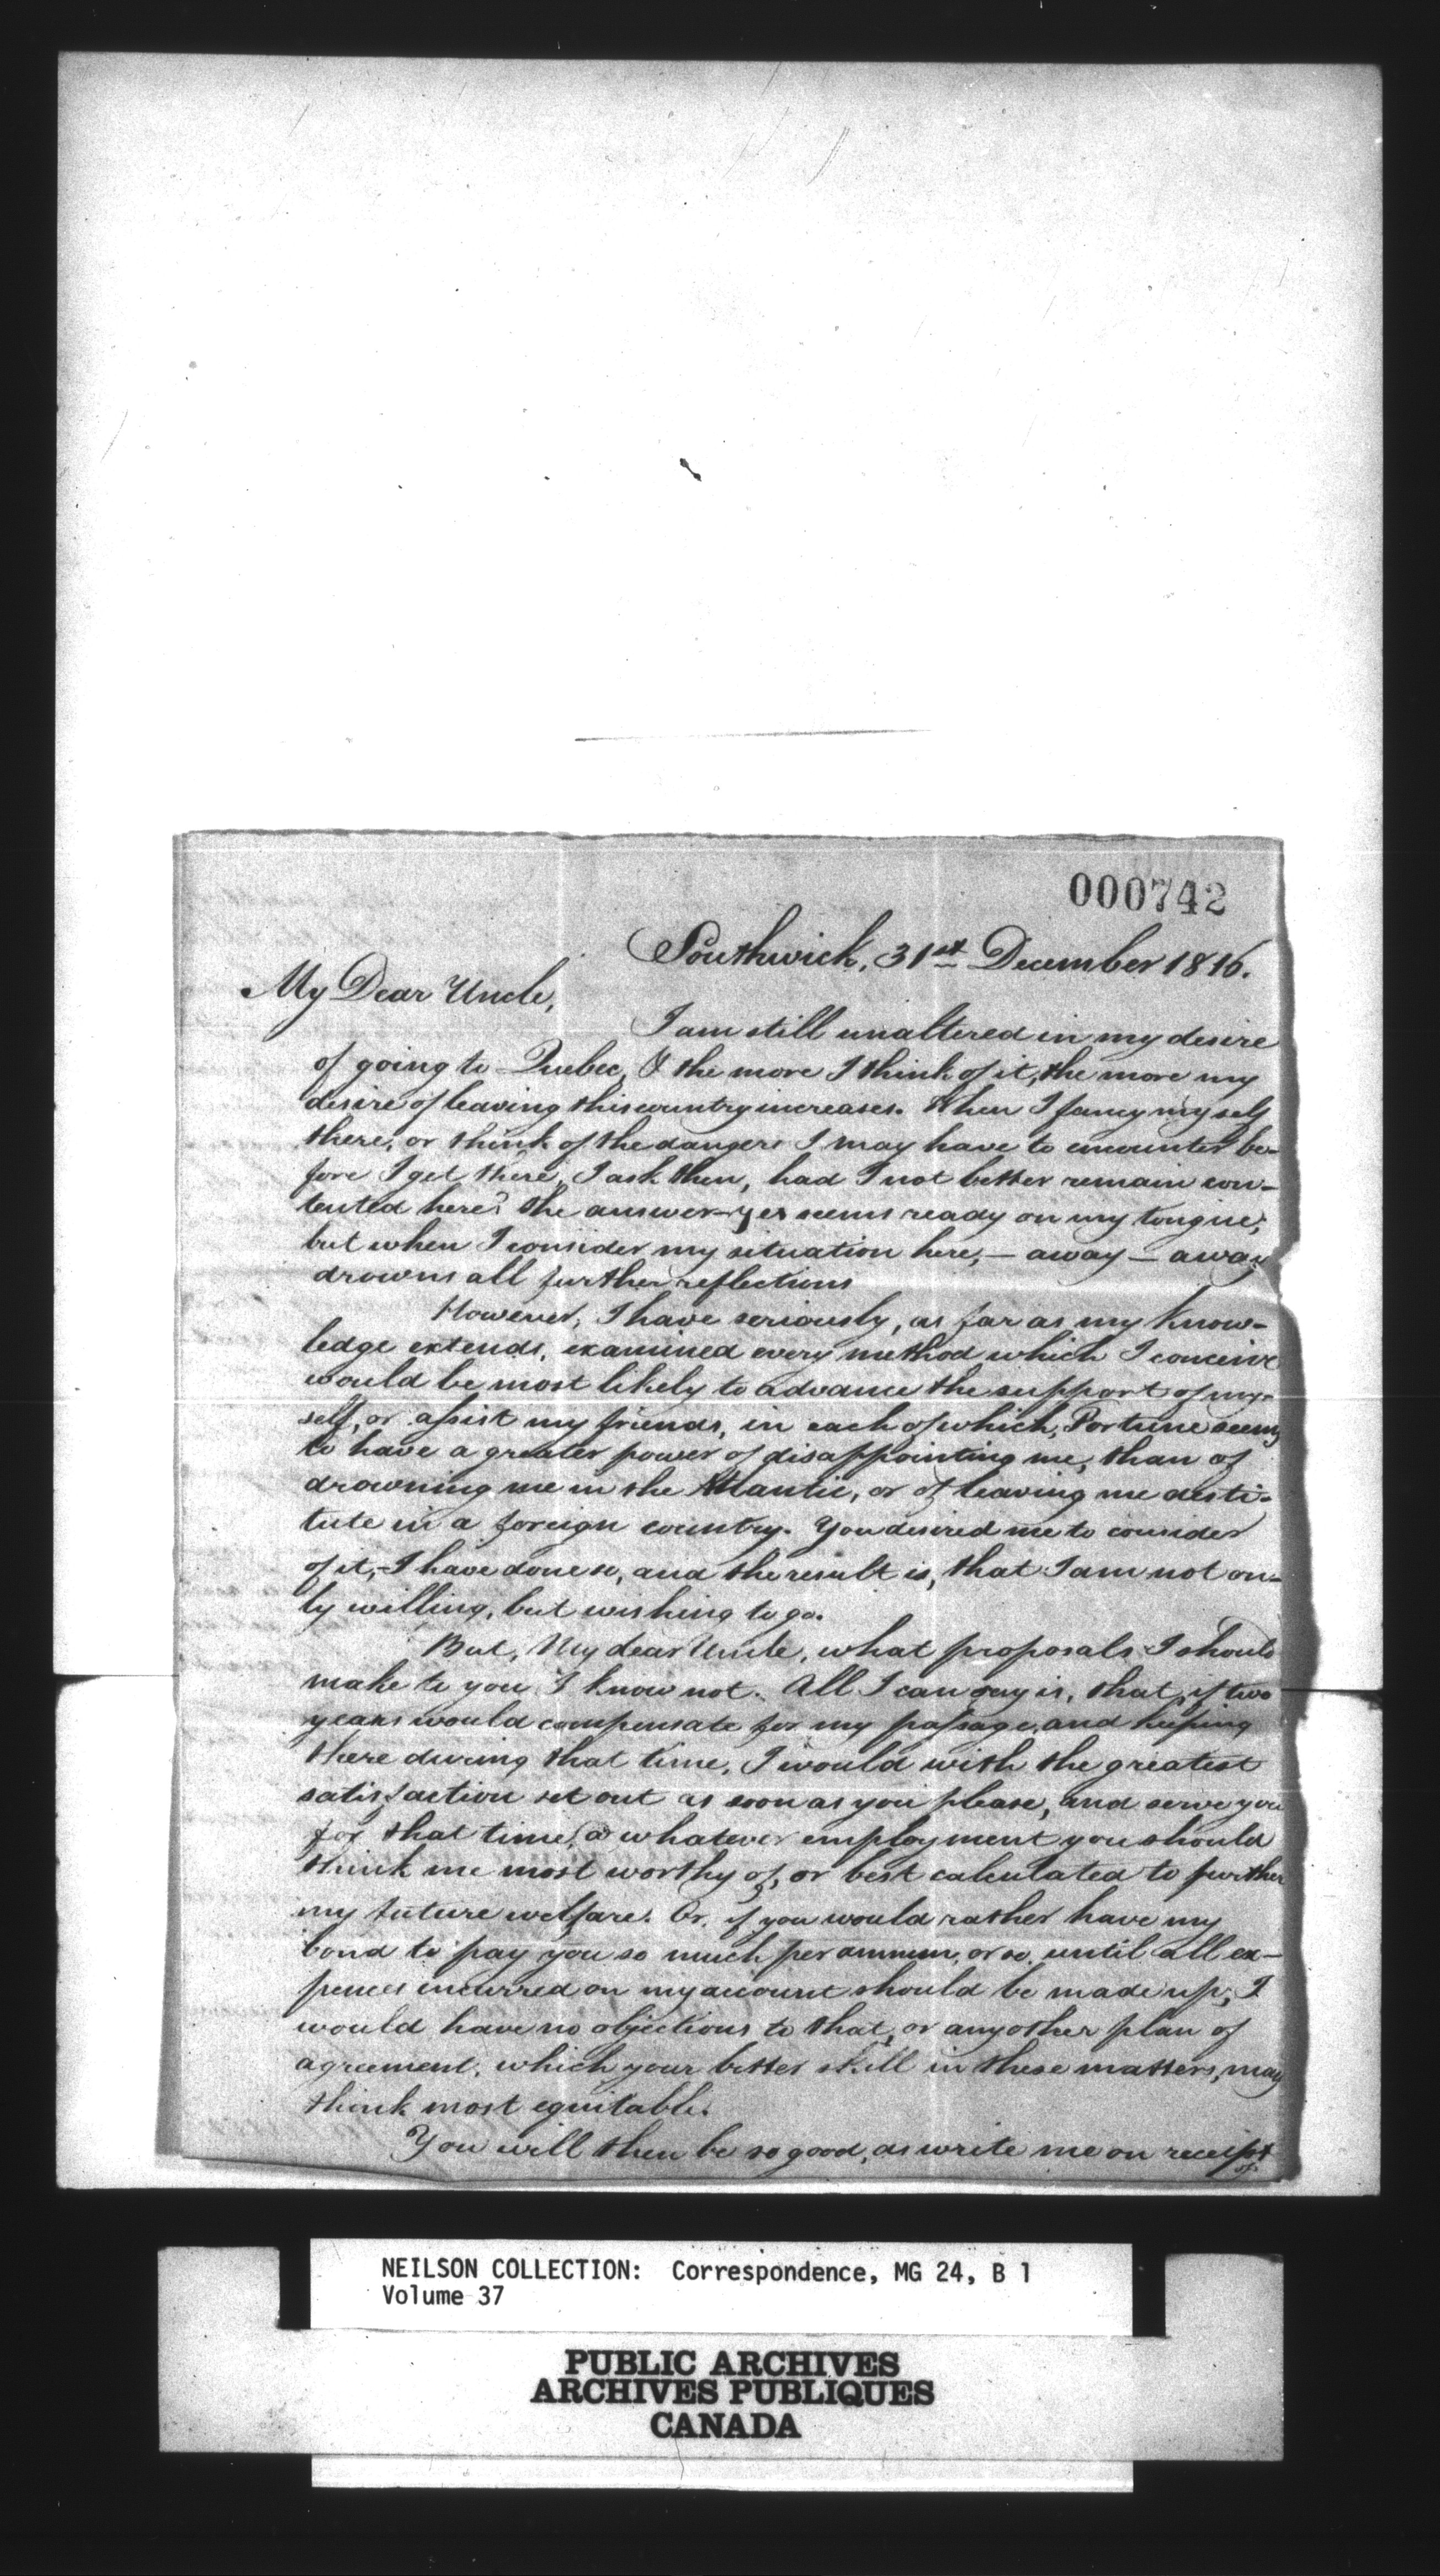 000742
Southwick, 31st December 1816.
My Dear Uncle,
I am still unaltered in my desire
of going to Quebec, & the more I think of it, the more my
desire of leaving this country increases. When I fancy myself
there, or think of the dangers I may have to encounter be-
fore I get there, I ask then, had I not better remain con-
tented here? the answer—yes seems ready on my tongue;
but when I consider my situation here, — away — away
drowns all further reflections
However, I have seriously, as far as my know-
ledge extends, examined every method which I conceive
would be most likely to advance the support of my-
self, or assist my friends, in each of which, Fortune seems
to have a greater power of disappointing me, than of
drowning me in the Atlantic, or of leaving me desti-
tute in a foreign country. You desired me to consider
of it,—I have done so, and the result is, that I am not on-
ly willing, but wishing to go.
But, My dear Uncle, what proposals I should
make to you I know not. All I can say is, that, if two
years would compensate for my passage, and keeping
there during that time, I would with the greatest
satisfaction set out as soon as you please, and serve you
for that time, @ whatever employment you should
think me most worthy of, or best calculated to further
my future welfare. Or, if you would rather have my
bond to pay you so much per annum, or so, until all ex-
pences incurred on my account should be made up; I
would have no objections to that, or any other plan of
agreement, which your better skill in these matters, may
think most equitable.
You will then be so good, as write me on receipt
of
NEILSON COLLECTION: Correspondence, MG 24, B 1
Volume 37
PUBLIC ARCHIVES
ARCHIVES PUBLIQUES
CANADA